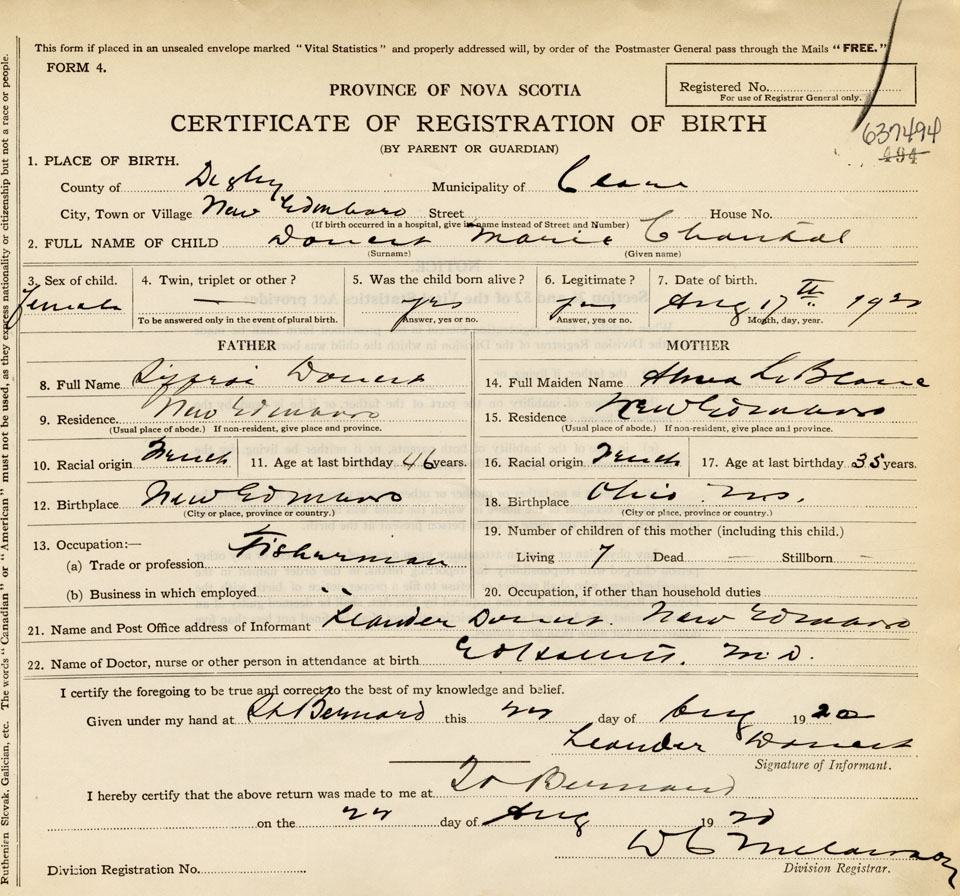 This form if placed in an unsealed envelope marked "Vital Statistics" and properly addressed will, by order of the Postmaster General pass through the Mails "FREE."
FORM 4.
Registered No.
For use of Registrar General only.
PROVINCE OF NOVA SCOTIA
CERTIFICATE OF REGISTRATION OF BIRTH
(BY PARENT OR GUARDIAN)
637494
494
1. PLACE OF BIRTH.
County of Digby Municipality of Clare
City, Town or Village New Edinboro Street House No.
(If birth occurred in a hospital, give its name instead of Street and Number)
2. FULL NAME OF CHILD Doucet Marie Chantal
(Surname) (Given name)
3. Sex of child. 4. Twin, triplet or other? 5. Was the child born alive? 6. Legitimate? 7. Date of birth.
Female — yes yes Aug 17th 1920
To be answered only in the event of plural birth. Answer, yes or no. Answer, yes or no. Month, day, year.
FATHER MOTHER
8. Full Name Doucet 14. Full Maiden Name LeBlanc
9. Residence New Edinboro 15. Residence New Edinboro
(Usual place of abode.) If non-resident, give place and province. (Usual place of abode.) If non-resident, give place and province.
10. Racial origin French 11. Age at last birthday 46 years. 16. Racial origin French 17. Age at last birthday 35 years.
12. Birthplace New Edinboro 18. Birthplace Ohio N.S.
(City or place, province or country.) (City or place, province or country.)
13. Occupation:— 19. Number of children of this mother (including this child.)
(a) Trade or profession Fisherman Living 7 Dead — Stillborn —
(b) Business in which employed " 20. Occupation, if other than household duties
21. Name and Post Office address of Informant Leander Doucet. New Edinboro
22. Name of Doctor, nurse or other person in attendance at birth M.D.
I certify the foregoing to be true and correct to the best of my knowledge and belief.
Given under my hand at St Bernard this 22 day of Aug 1920
Leander Doucet
Signature of Informant.
I hereby certify that the above return was made to me at St Bernard
on the 22 day of Aug 1920
Division Registration No.
Division Registrar.
Ruthenian Slovak, Galician, etc. The words "Canadian" or "American" must not be used, as they express nationality or citizenship but not a race or people.